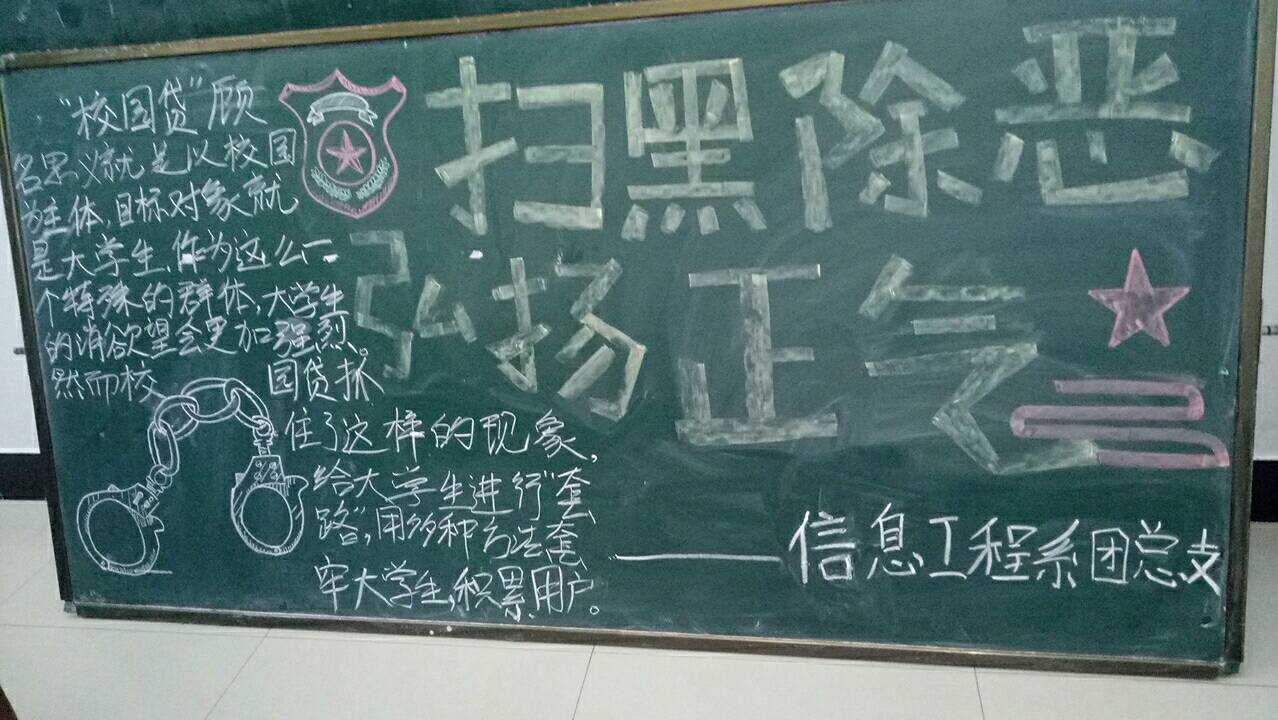 扫黑除恶
弘扬正气
"校园贷"顾
名思义就是以校园
为主体,目标对象就
是大学生,作为这么一
个特殊的群体,大学生
的消欲望会更加强烈。
然而校 园贷抓
住了这样的现象,
给大学生进行"套
路",用多种方法套
牢大学生,积累用户。
——信息工程系团总支